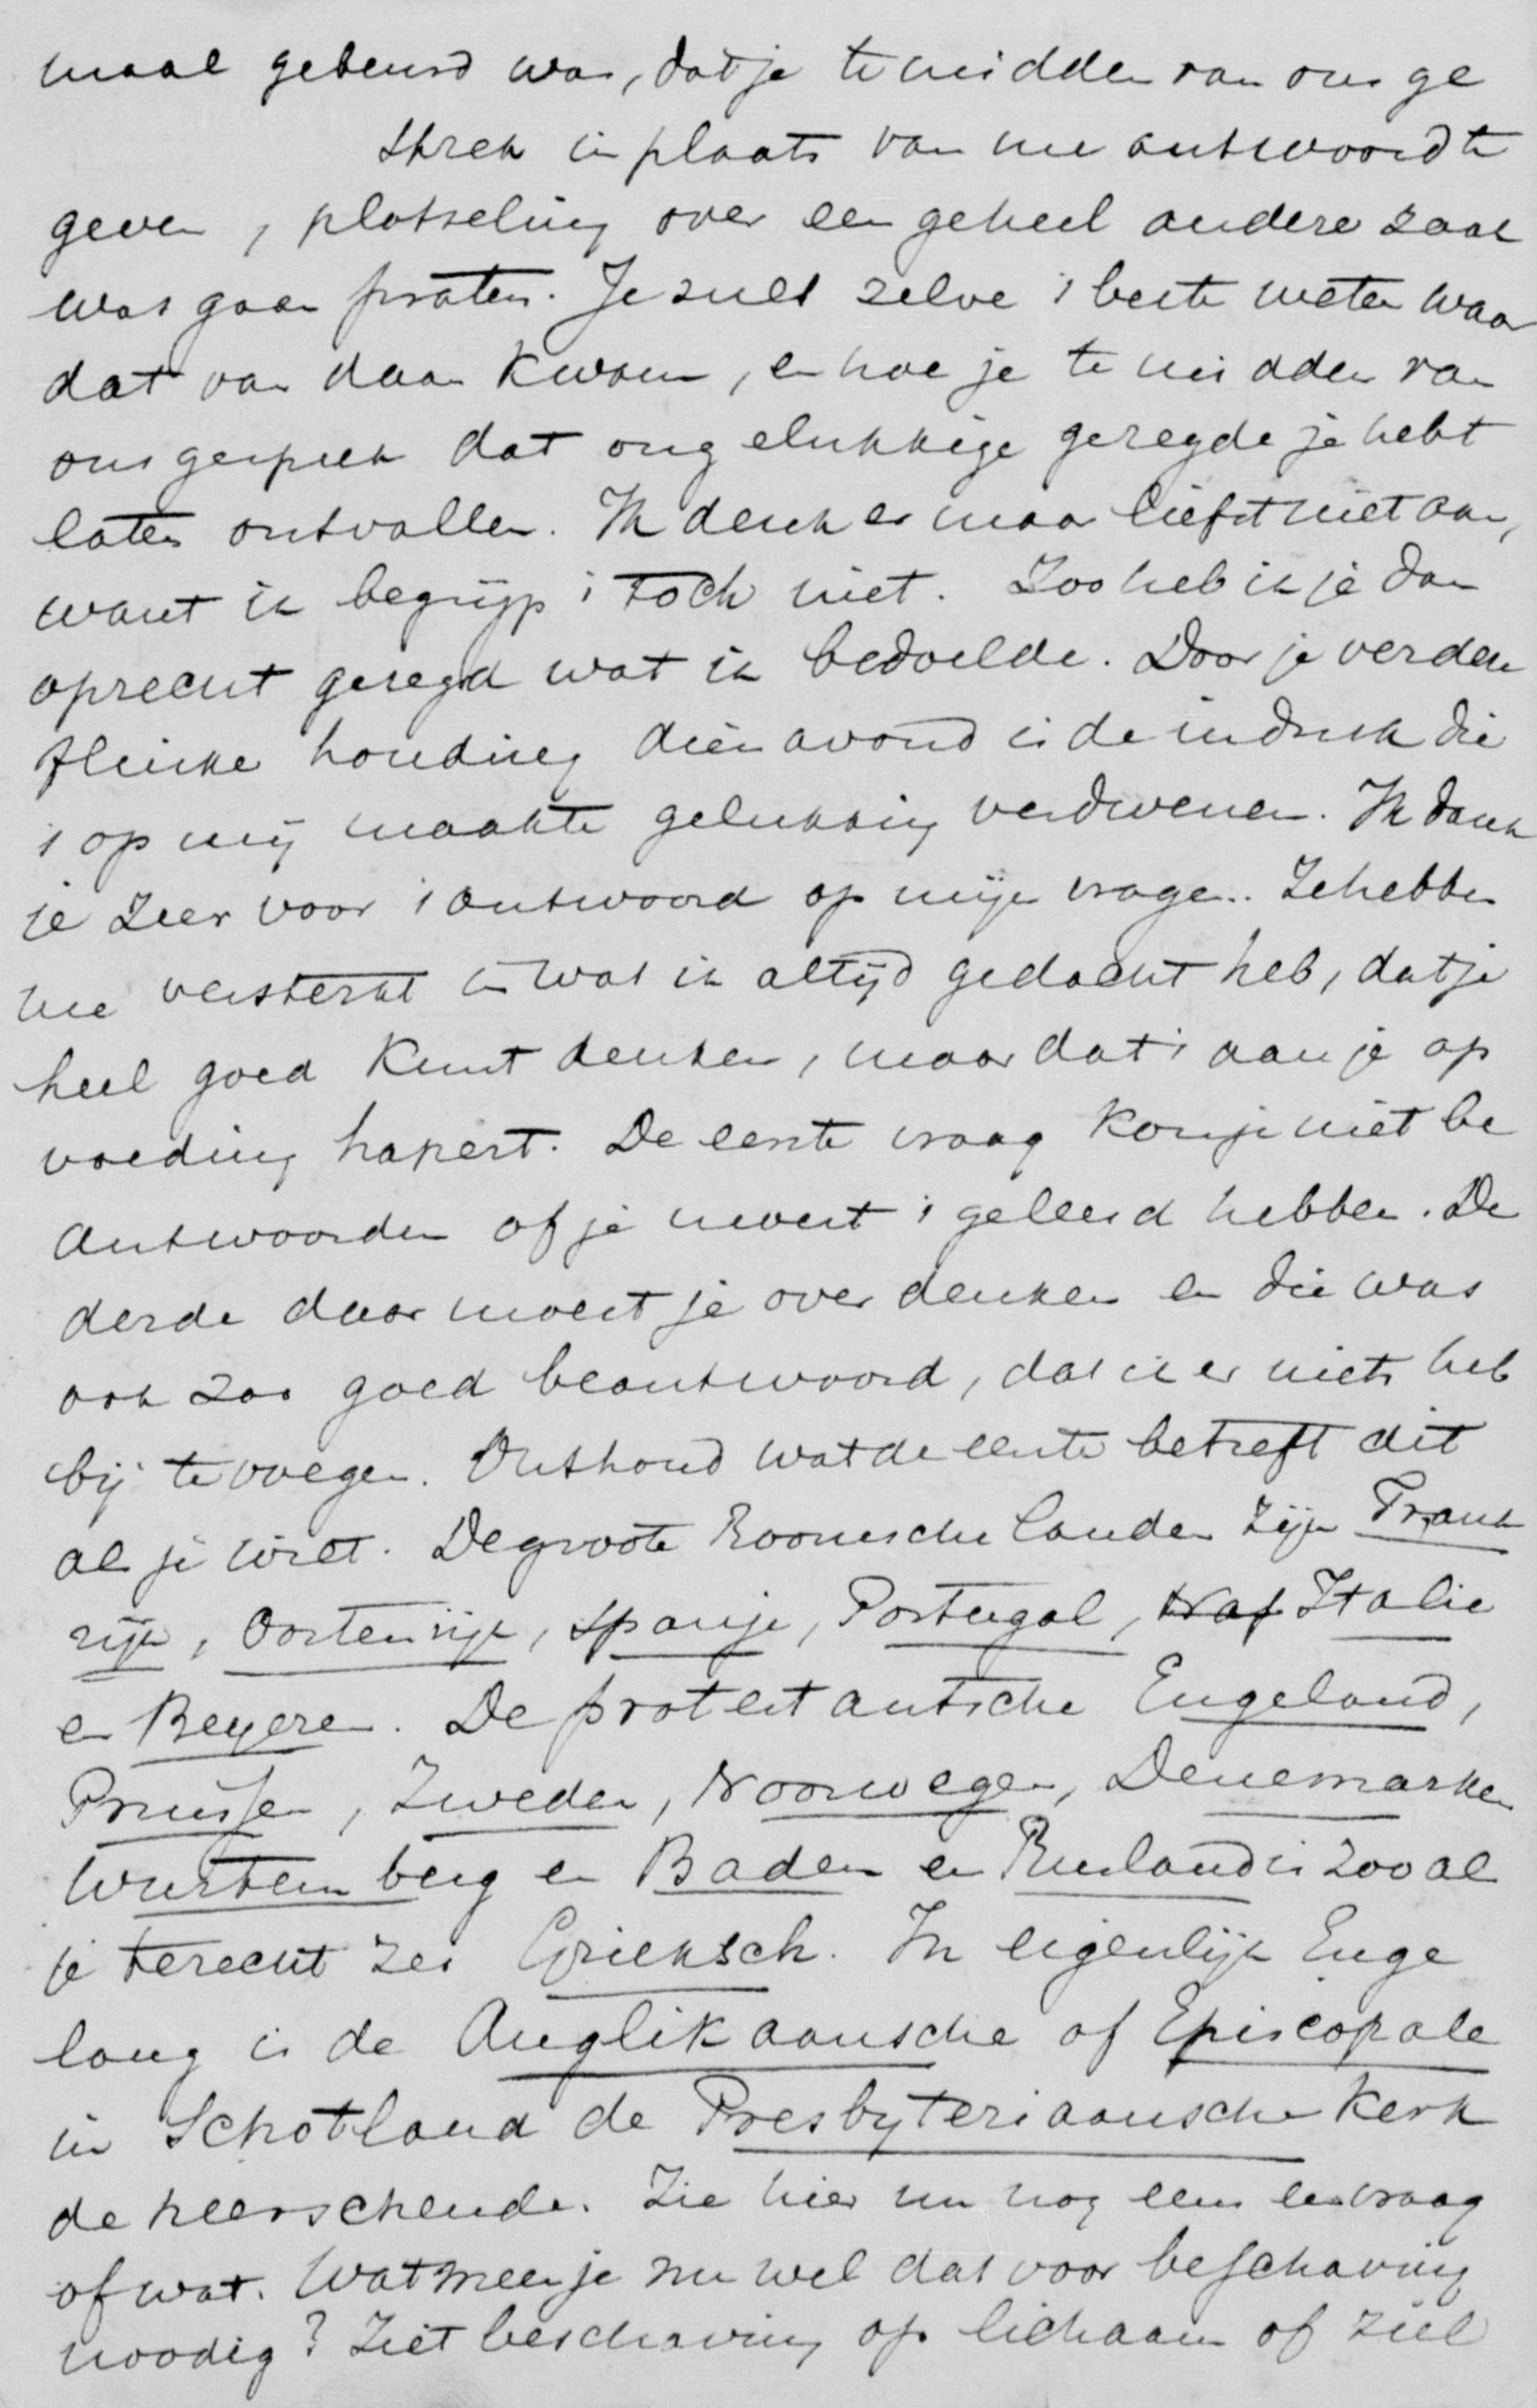 maal gebeurd was, dat je te midden van ons ge
sprek in plaats van me antwoord te
geven, plotseling over een geheel andere zaak
was gaan praten. Je zult zelve 't beste weten waar
dat van daan kwam, en hoe je te midden van
ons gesprek dat ongelukkige gezegde je hebt
laten ontvallen. Ik denk er maar liefst niet aan,
want ik begrijp 't toch niet. Zoo heb ik je dan
oprecht gezegd wat ik bedoelde. Door je verdere
flinke houding dien avond is de indruk die
't op mij maakte gelukkig verdwenen. Ik dank
je zeer voor 't antwoord op mijn vragen. Ze hebben
me versterkt in wat ik altijd gedacht heb, dat je
heel goed kunt denken, maar dat 't aan je op
voeding hapert. De eerste vraag kon je niet be
antwoorden of je moest 't geleerd hebben. De
derde daar moest je over denken en die was
ook zoo goed beantwoord, dat ik er niets heb
bij te voegen. Onthoud wat de eerste betreft dit
als je wilt. De groote Roomsche landen zijn Frank
rijk, Oostenrijk, Spanje, Portugal, Italie
en Beyeren. De protestantsche Engeland,
Pruissen, Zweden, Noorwegen, Denemarken
Wurtemberg en Baden en Rusland is zooals
je terecht zei Grieksch. In eigenlijk Enge
lang is de Anglikaansche of Episcopale
in Schotland de Presbyteriaansche Kerk
de heerschende. Zie hier nu nog eens een vraag
of wat. Wat meen je nu wel dat voor beschaving
noodig? Ziet beschaving op lichaam of ziel